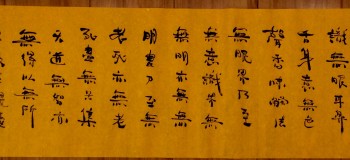 識無眼耳鼻
舌身意無色
聲香味觸法
無眼界乃至
無意識界無
無明亦無無
明盡乃至無
老死亦無老
死盡無苦集
滅道無智亦
無得以無所